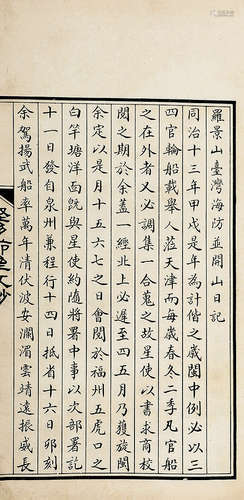 羅景山臺灣海防並開山日記
同治十三年甲戌是年為計偕之歲閩中例必以三
四官輪船載舉人赴天津而每歲春冬二季凡官船
之在外者又必調集一合蒐之故星使以書求商校
閱之期於余蓋一經北上必遲至四五月乃獲旋閩
余定以是月十五六七之日會閱於福州五虎口之
白竿塘洋面旣與星使約隨將署中事以次部署訖
十一日發自泉州兼程行十四日抵省十六日卯刻
余駕揚武船率萬年清伏波安瀾湄雲靖遠振威長